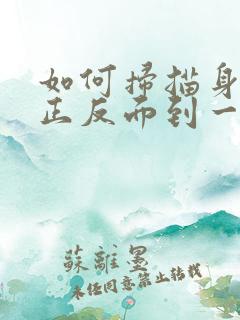 如何掃描身
正反面到一
蘇離墨
未經同意禁止轉載